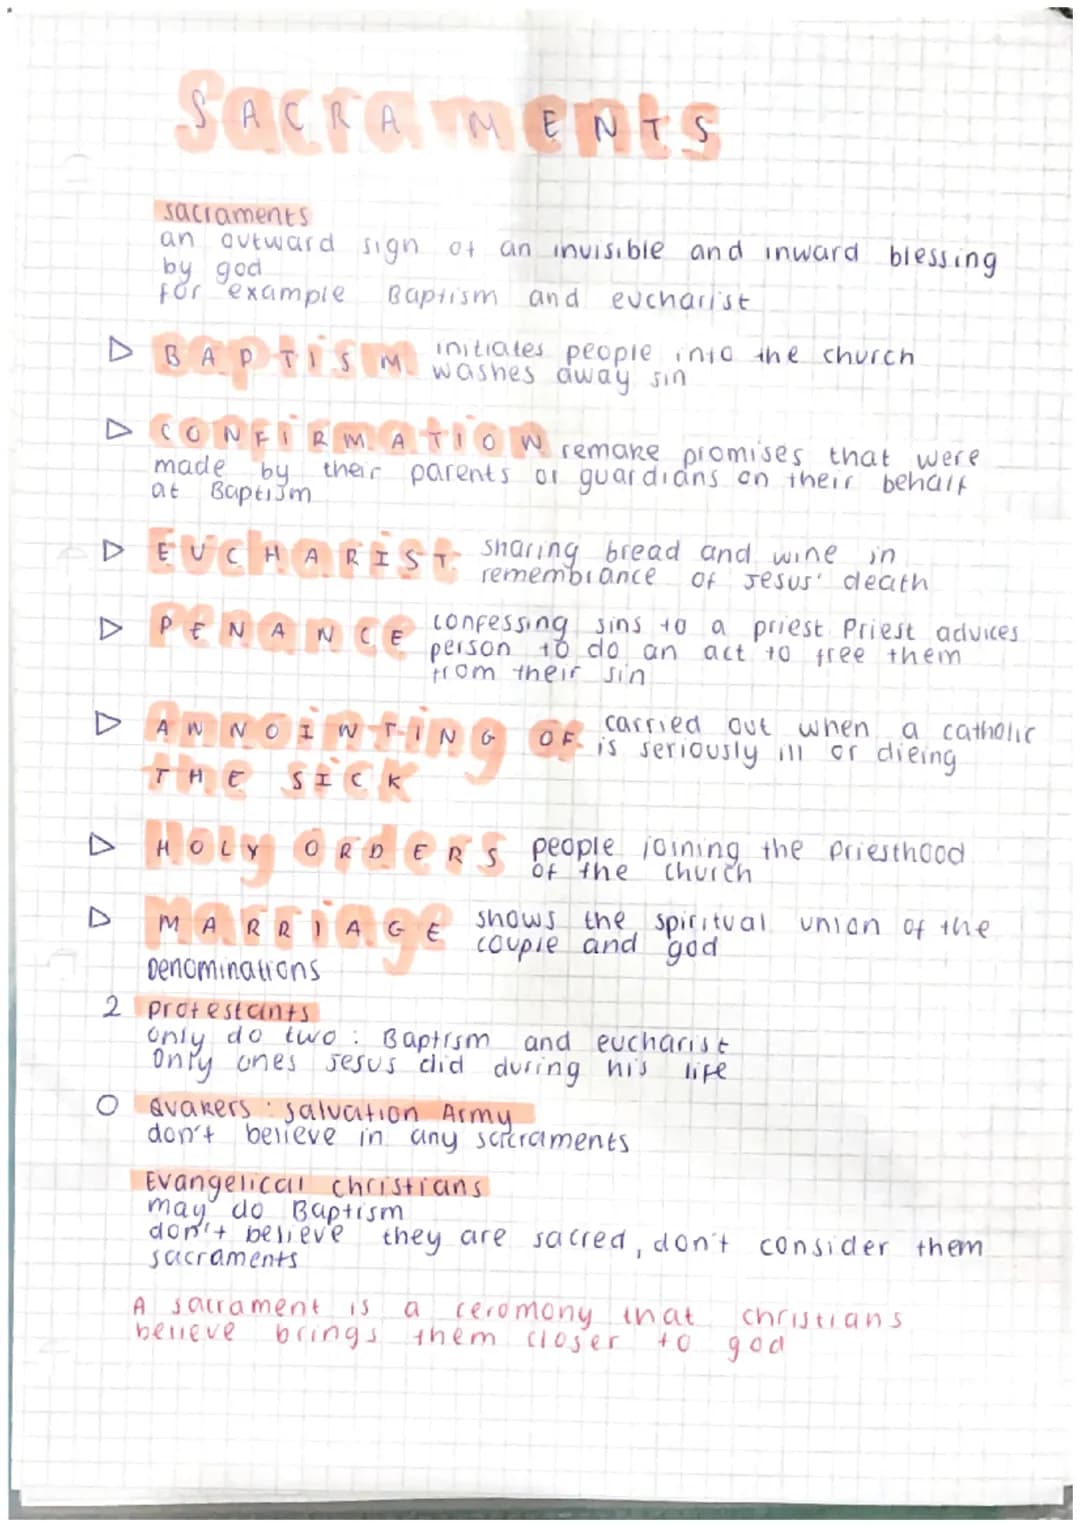 SACRAMENTS
sacraments
an outward sign of an invisible and inward blessing
by god
for example Baptism and eucharist
BAPTISM initiates people into the church
washes away sin
CONFIRMATION remake promises that were
made by their parents or guardians on their behalf
at Baptism
EUCHARIST sharing bread and wine in
remembrance of Jesus' death
PENANCE confessing sins to a priest. Priest advices
person to do an act to free them
from their sin
ANNOINTING OF carried out when a catholic
THE SICK is seriously ill or dieing
HOLY ORDERS people joining the priesthood
of the church
MARRIAGE shows the spiritual union of the
couple and god
Denominations
2 protestants
only do two: Baptism and eucharist
Only ones Jesus did during his life
0 Quakers : salvation Army
don't believe in any sacraments
Evangelical christians
may do Baptism
don't believe they are sacred, don't consider them
sacraments
A sacrament is a ceromony that christians
believe brings them closer to god